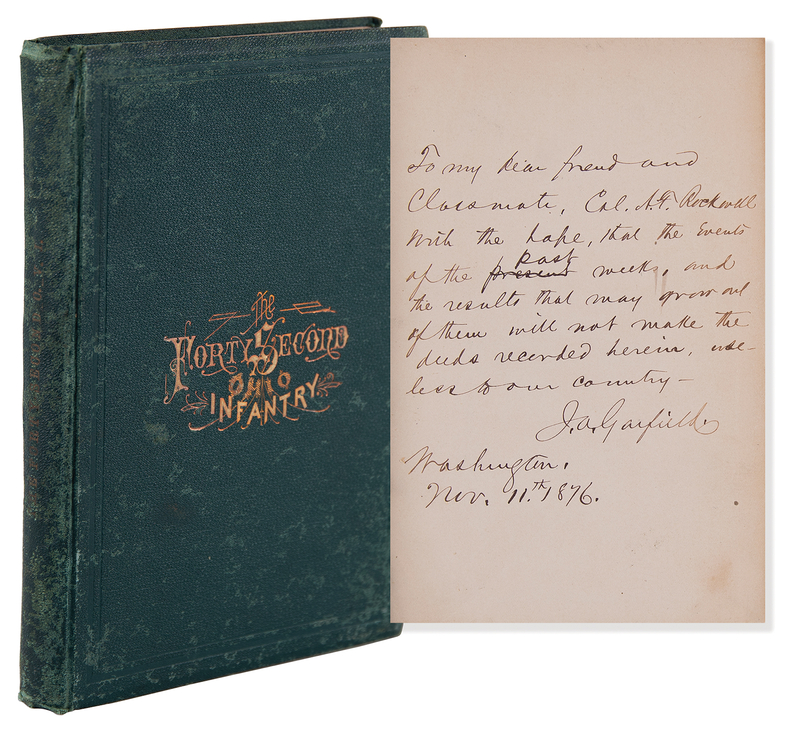 The
Forty Second
Ohio
Infantry.
To my dear friend and
Classmate, Col. A.F. Rockwell
With the hope, that the Events
of the present past weeks, and
the results that may grow out
of them will not make the
deeds recorded herein, use-
less to our country —
J.A. Garfield.
Washington.
Nov. 11.th 1876.